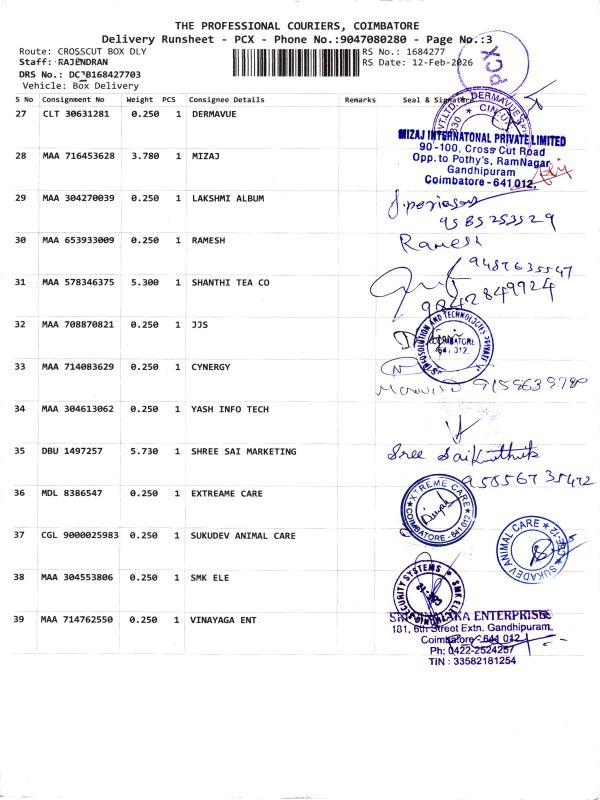 THE PROFESSIONAL COURIERS, COIMBATORE
Delivery Runsheet - PCX - Phone No.:9047080280 - Page No.:3
Route: CROSSCUT BOX DLY
RS No.: 1684277
Staff: RAJENDRAN
RS Date: 12-Feb-2026
DRS No.: DC*B168427703
Vehicle: Box Delivery
PCX
S No Consignment No Weight PCS Consignee Details Remarks Seal & Signature
27 CLT 30631281 0.250 1 DERMAVUE
28 MAA 716453628 3.780 1 MIZAJ
MIZAJ INTERNATONAL PRIVATE LIMITED
90-100, Cross Cut Road
Opp. to Pothy's, RamNagar
Gandhipuram
Coimbatore - 641 012.
29 MAA 304270039 0.250 1 LAKSHMI ALBUM
9585253529
30 MAA 653933009 0.250 1 RAMESH
Ramesh
9487635547
31 MAA 578346375 5.300 1 SHANTHI TEA CO
9842849924
32 MAA 708870821 0.250 1 JJS
33 MAA 714083629 0.250 1 CYNERGY
34 MAA 304613062 0.250 1 YASH INFO TECH
35 DBU 1497257 5.730 1 SHREE SAI MARKETING
Sree
36 MDL 8386547 0.250 1 EXTREAME CARE
XTREME CARE
COIMBATORE - 641 012
37 CGL 9000025983 0.250 1 SUKUDEV ANIMAL CARE
SUKADEV ANIMAL CARE
CBE-12
38 MAA 304553806 0.250 1 SMK ELE
39 MAA 714762550 0.250 1 VINAYAGA ENT
ENTERPRISES
181, 6th Street Extn. Gandhipuram,
Coimbatore - 641 012
Ph: 0422-2524257
TIN : 33582181254